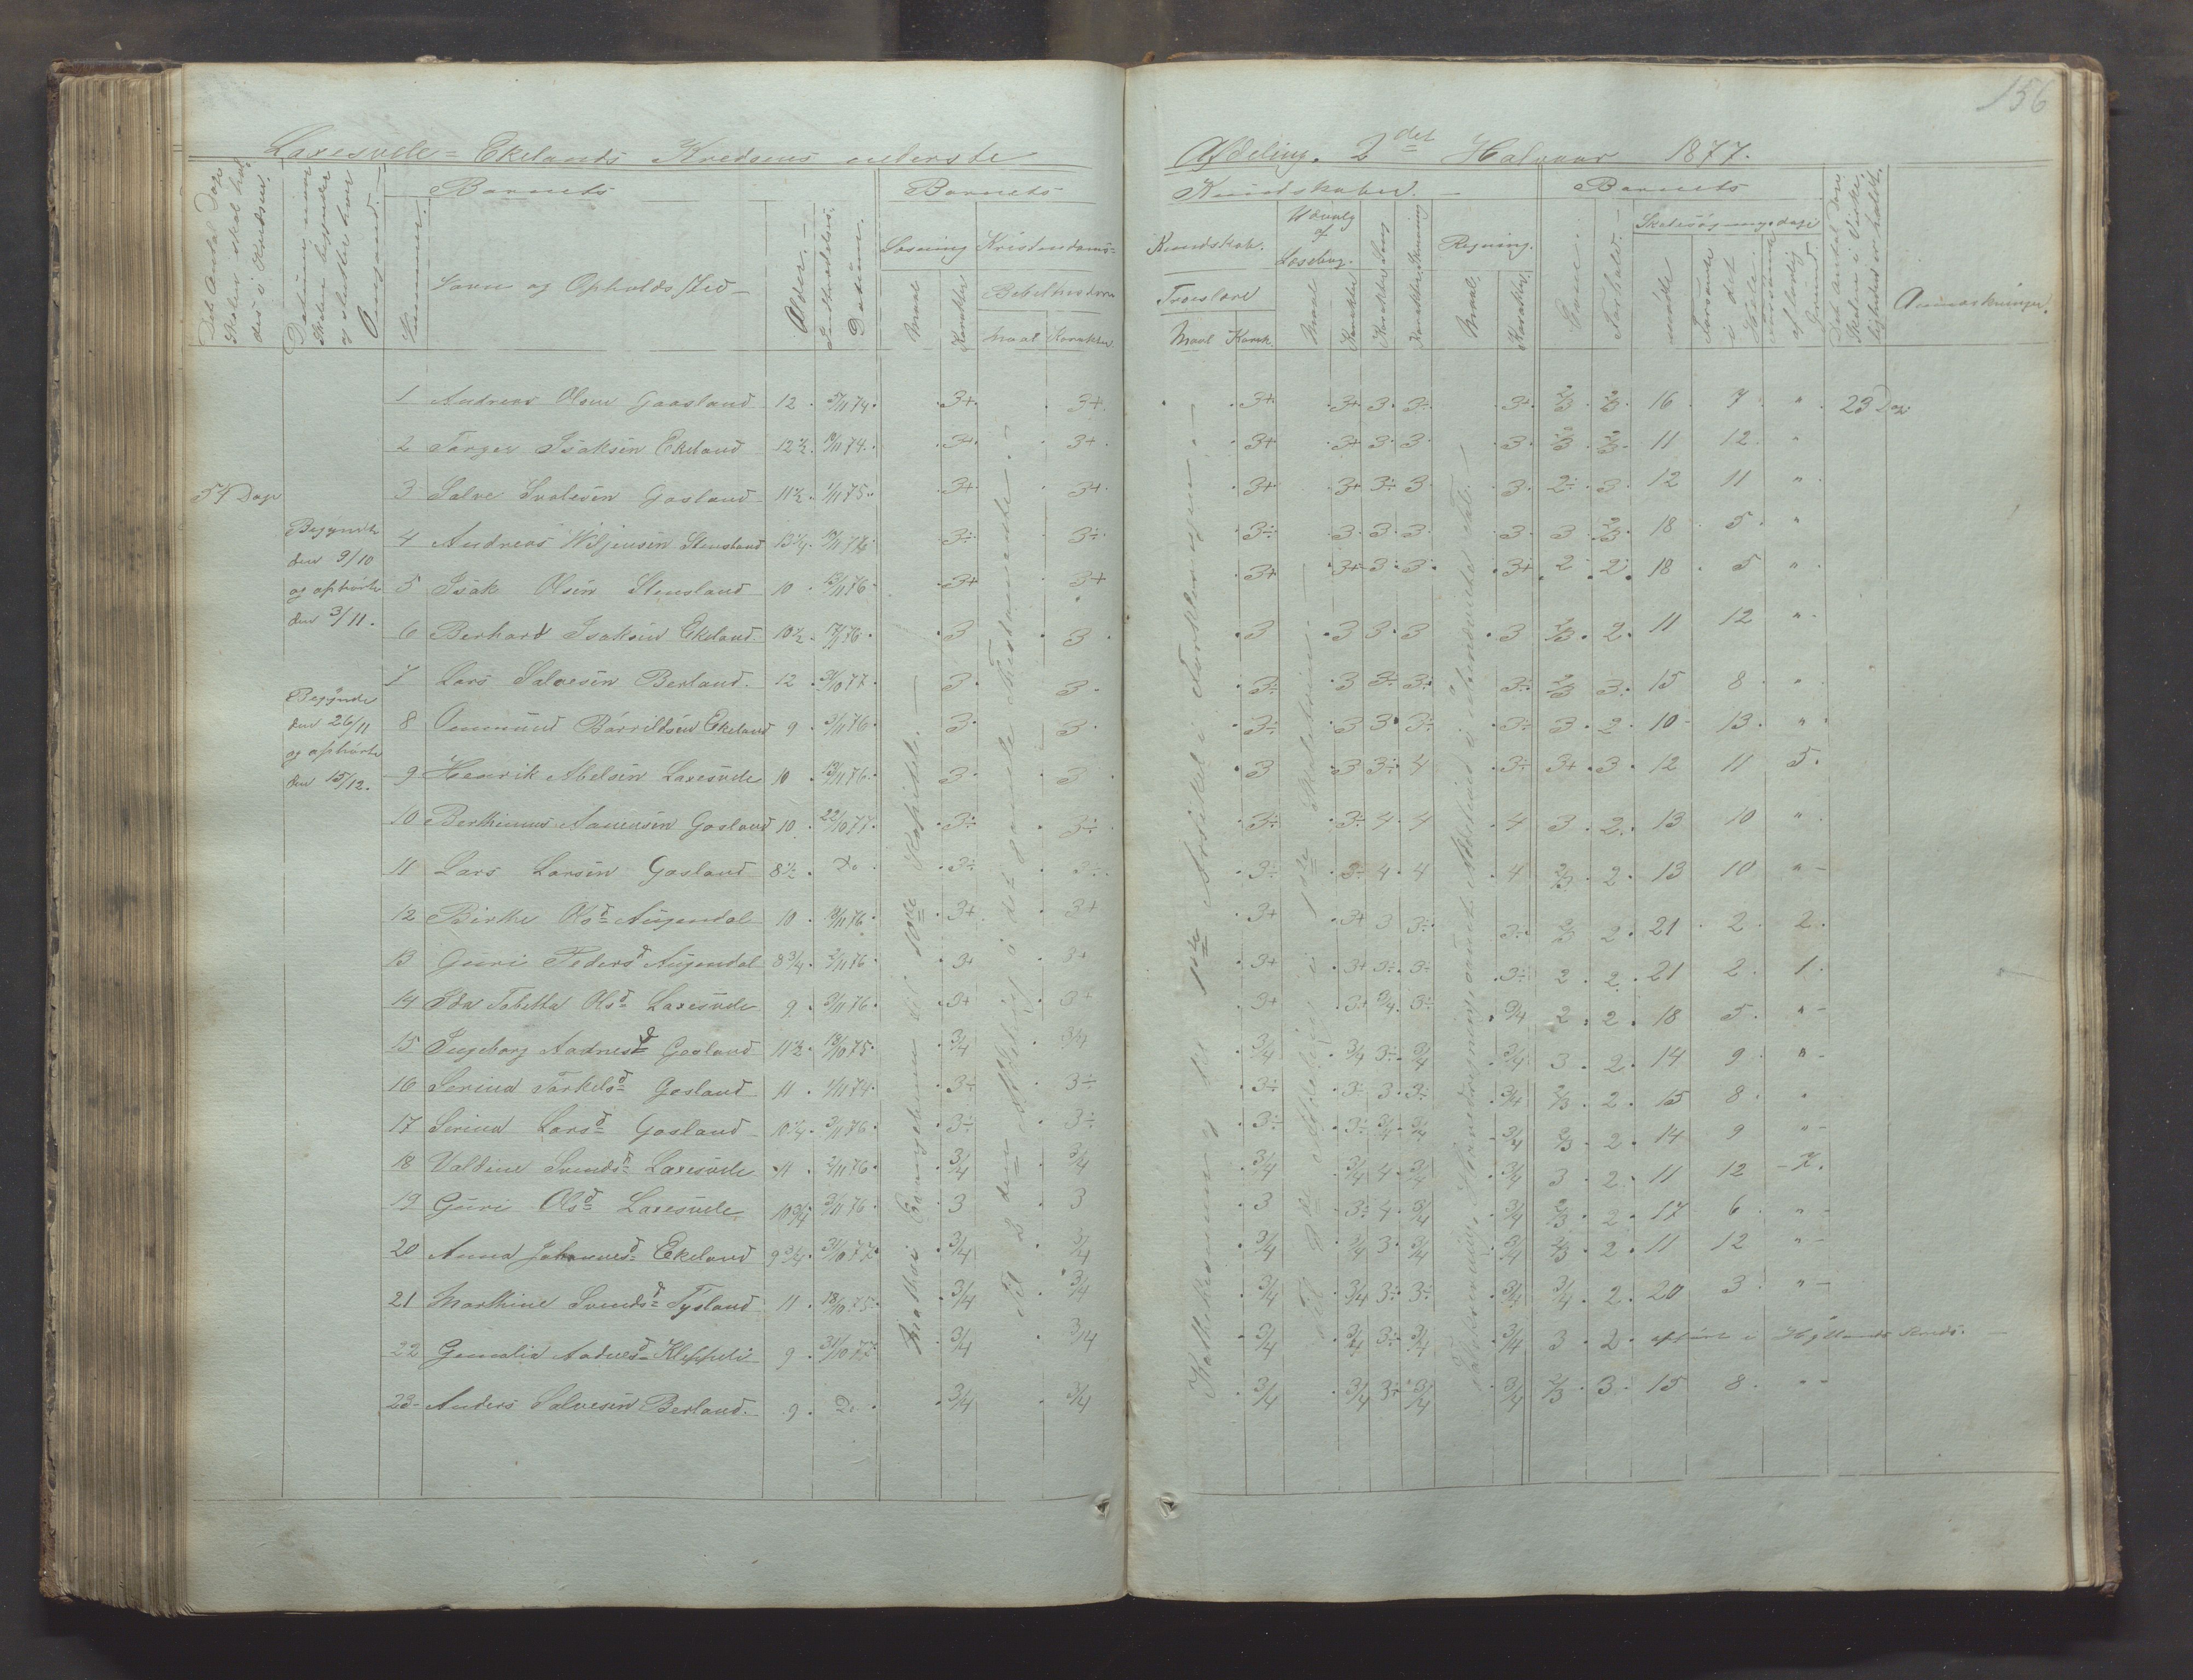 156
Laxesvele = Ekelands Kredsens nederste
Afdeling. 2det Halvaar 1877.
Det Antal Dage Skolen skal holdes i Kredsen.
Datum naar Skolen begynder og slutter hver Omgang.
Nummer.
Barnets
Navn og Opholdssted
Alder.
Indtrædelses Datum.
Barnets
Læsning
Maal
Karakter
Kristendoms=
Bibelhistorie
Maal Karakter
Kundskaber.
Kundskab.
Troeslære
Maal Karak.
Udvalg af Læsebog.
Maal
Karakter
Karakter Sang
Karakter Skrivning
Regning.
Maal.
Karakter
Barnets
Evne.
Forhold.
Skolesøgningsdage
mødte
Forsømte i det Hele
forsømte af lovlig Grund.
Det Antal Dage Skolen i Virkeligheden er holdt.
Anmærkninger.
54 Dage
Begyndte
den 9/10
og ophørte
den 3/11.
Begyndte
den 26/11
og ophørte
den 15/12.
1 Andreas Olsen Gaasland 12 5/11 74 3+ 3+ 3+ 3+ 3 3÷ 3+ 2/3 2/3 16 7 " 23 Dage
2 Torger Isaksen Ekeland 12½ 19/11 74 3+ 3+ 3+ 3+ 3 3 3 2/3 2/3 11 12 "
3 Salve Svalesen Gosland 11½ 1/11 75 3+ 3+ 3+ 3+ 3÷ 3 3 2÷ 3 12 11 "
4 Andreas Wiljensen Stensland 13¼ 3÷ 3÷ 3÷ 3 3 3 3 3 2/3 18 5 "
5 Isak Olsen Stensland 10 13/11 76 3+ 3+ 3+ 3+ 3 3 3+ 2 2 18 5 "
6 Berhard Isaksen Ekeland 10½ 17/11 76 3 3 3 3 3 3 3 2/3 2 11 12 "
7 Lars Salvesen Berland 12 31/10 77 3 3 3÷ 3 3÷ 3÷ 3÷ 2/3 3 15 8 "
8 Ommund Børrildsen Ekeland 9 3/11 76 3 3 3÷ 3 3 3÷ 3÷ 3 2 10 13 "
9 Henrik Abelsen Laxesvele 10 13/11 76 3 3 3 3 3÷ 4 3÷ 3+ 3 12 11 5
10 Berthinius Aanensen Gosland 10 22/10 77 3÷ 3÷ 3÷ 3÷ 4 4 4 3 2 13 10 "
11 Lars Larsen Gosland 8½ Do 3÷ 3÷ 3÷ 3÷ 4 4 4 2/3 2 13 10 "
12 Birthe Olsd Augendal 10 3/11 76 3+ 3+ 3+ 3+ 3 3÷ 3÷ 2/3 2 21 2 2
13 Guri Pedersd Augendal 8¾ 2/11 76 3+ 3+ 3+ 3+ 3÷ 3÷ 3÷ 2 2 21 2 1
14 Ida Tabetta Olsd Laxesvele 9 3/11 76 3+ 3+ 3+ 3+ 3/4 3÷ 3/4 2 2 18 5 "
15 Ingeborg Aadnesd Gosland 11½ 18/10 75 3/4 3/4 3/4 3/4 3÷ 3/4 3/4 3 2 14 9 "
16 Serina Torkelsd Gosland 11 1/11 74 3÷ 3÷ 3÷ 3÷ 3 3÷ 3/4 2/3 2 15 8 "
17 Serina Larsd Gosland 10¼ 3/11 76 3÷ 3÷ 3÷ 3÷ 3/4 3/4 3/4 2/3 2 14 9 "
18 Valdine Svendsd Laxesvele 11 2/11 76 3/4 3/4 3/4 3/4 4 3/4 3/4 3 2 11 12
19 Guri Olsd Laxesvele 10¾ 3/11 76 3 3 3 3÷ 4 3/4 3/4 2/3 2 17 6 "
20 Anna Johannesd Ekeland 9¾ 31/10 77 3/4 3/4 3/4 3/4 3 3/4 3/4 2/3 2 11 12 "
21 Marthine Svendsd Tysland 11 18/10 75 3/4 3/4 3/4 3/4 3÷ 3÷ 3/4 3/4 2 20 3 "
22 Gemalia Aadnesd Kleppeli 9 31/10 77 3/4 3/4 3/4 3/4 3÷ 3/4 3/4 3 2 opført i Hyllands Kreds.
23 Anders Salvesen Berland 9 Do 3/4 3/4 3/4 3/4 3÷ 3/4 3/4 2/3 3 15 8 "
Mathæi Evangelium til 10de Kapitel.
Til 2den Afdeling i det gamle Testamente.
Katekismus til 1ste Artikel i Forklaringen.
Til 2de Afdeling i 1ste